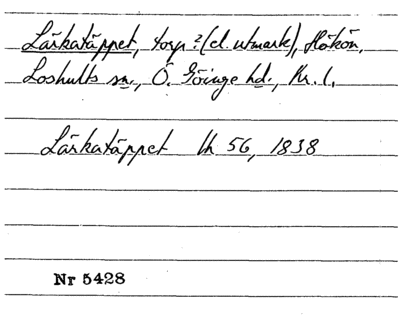 Lärkatäppet, torp? (el. utmark), Hökön,
Loshults sn., Ö. Göinge hd., Kr. l.
Lärkatäppet lh 56, 1838
Nr 5428